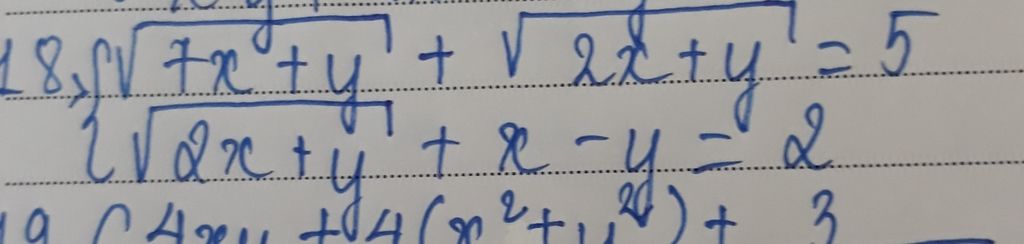 18, { √(7x + y) + √(2x + y) = 5
{ √(2x + y) + x - y = 2
19 { 4xy + 4(x² + y²) + 3